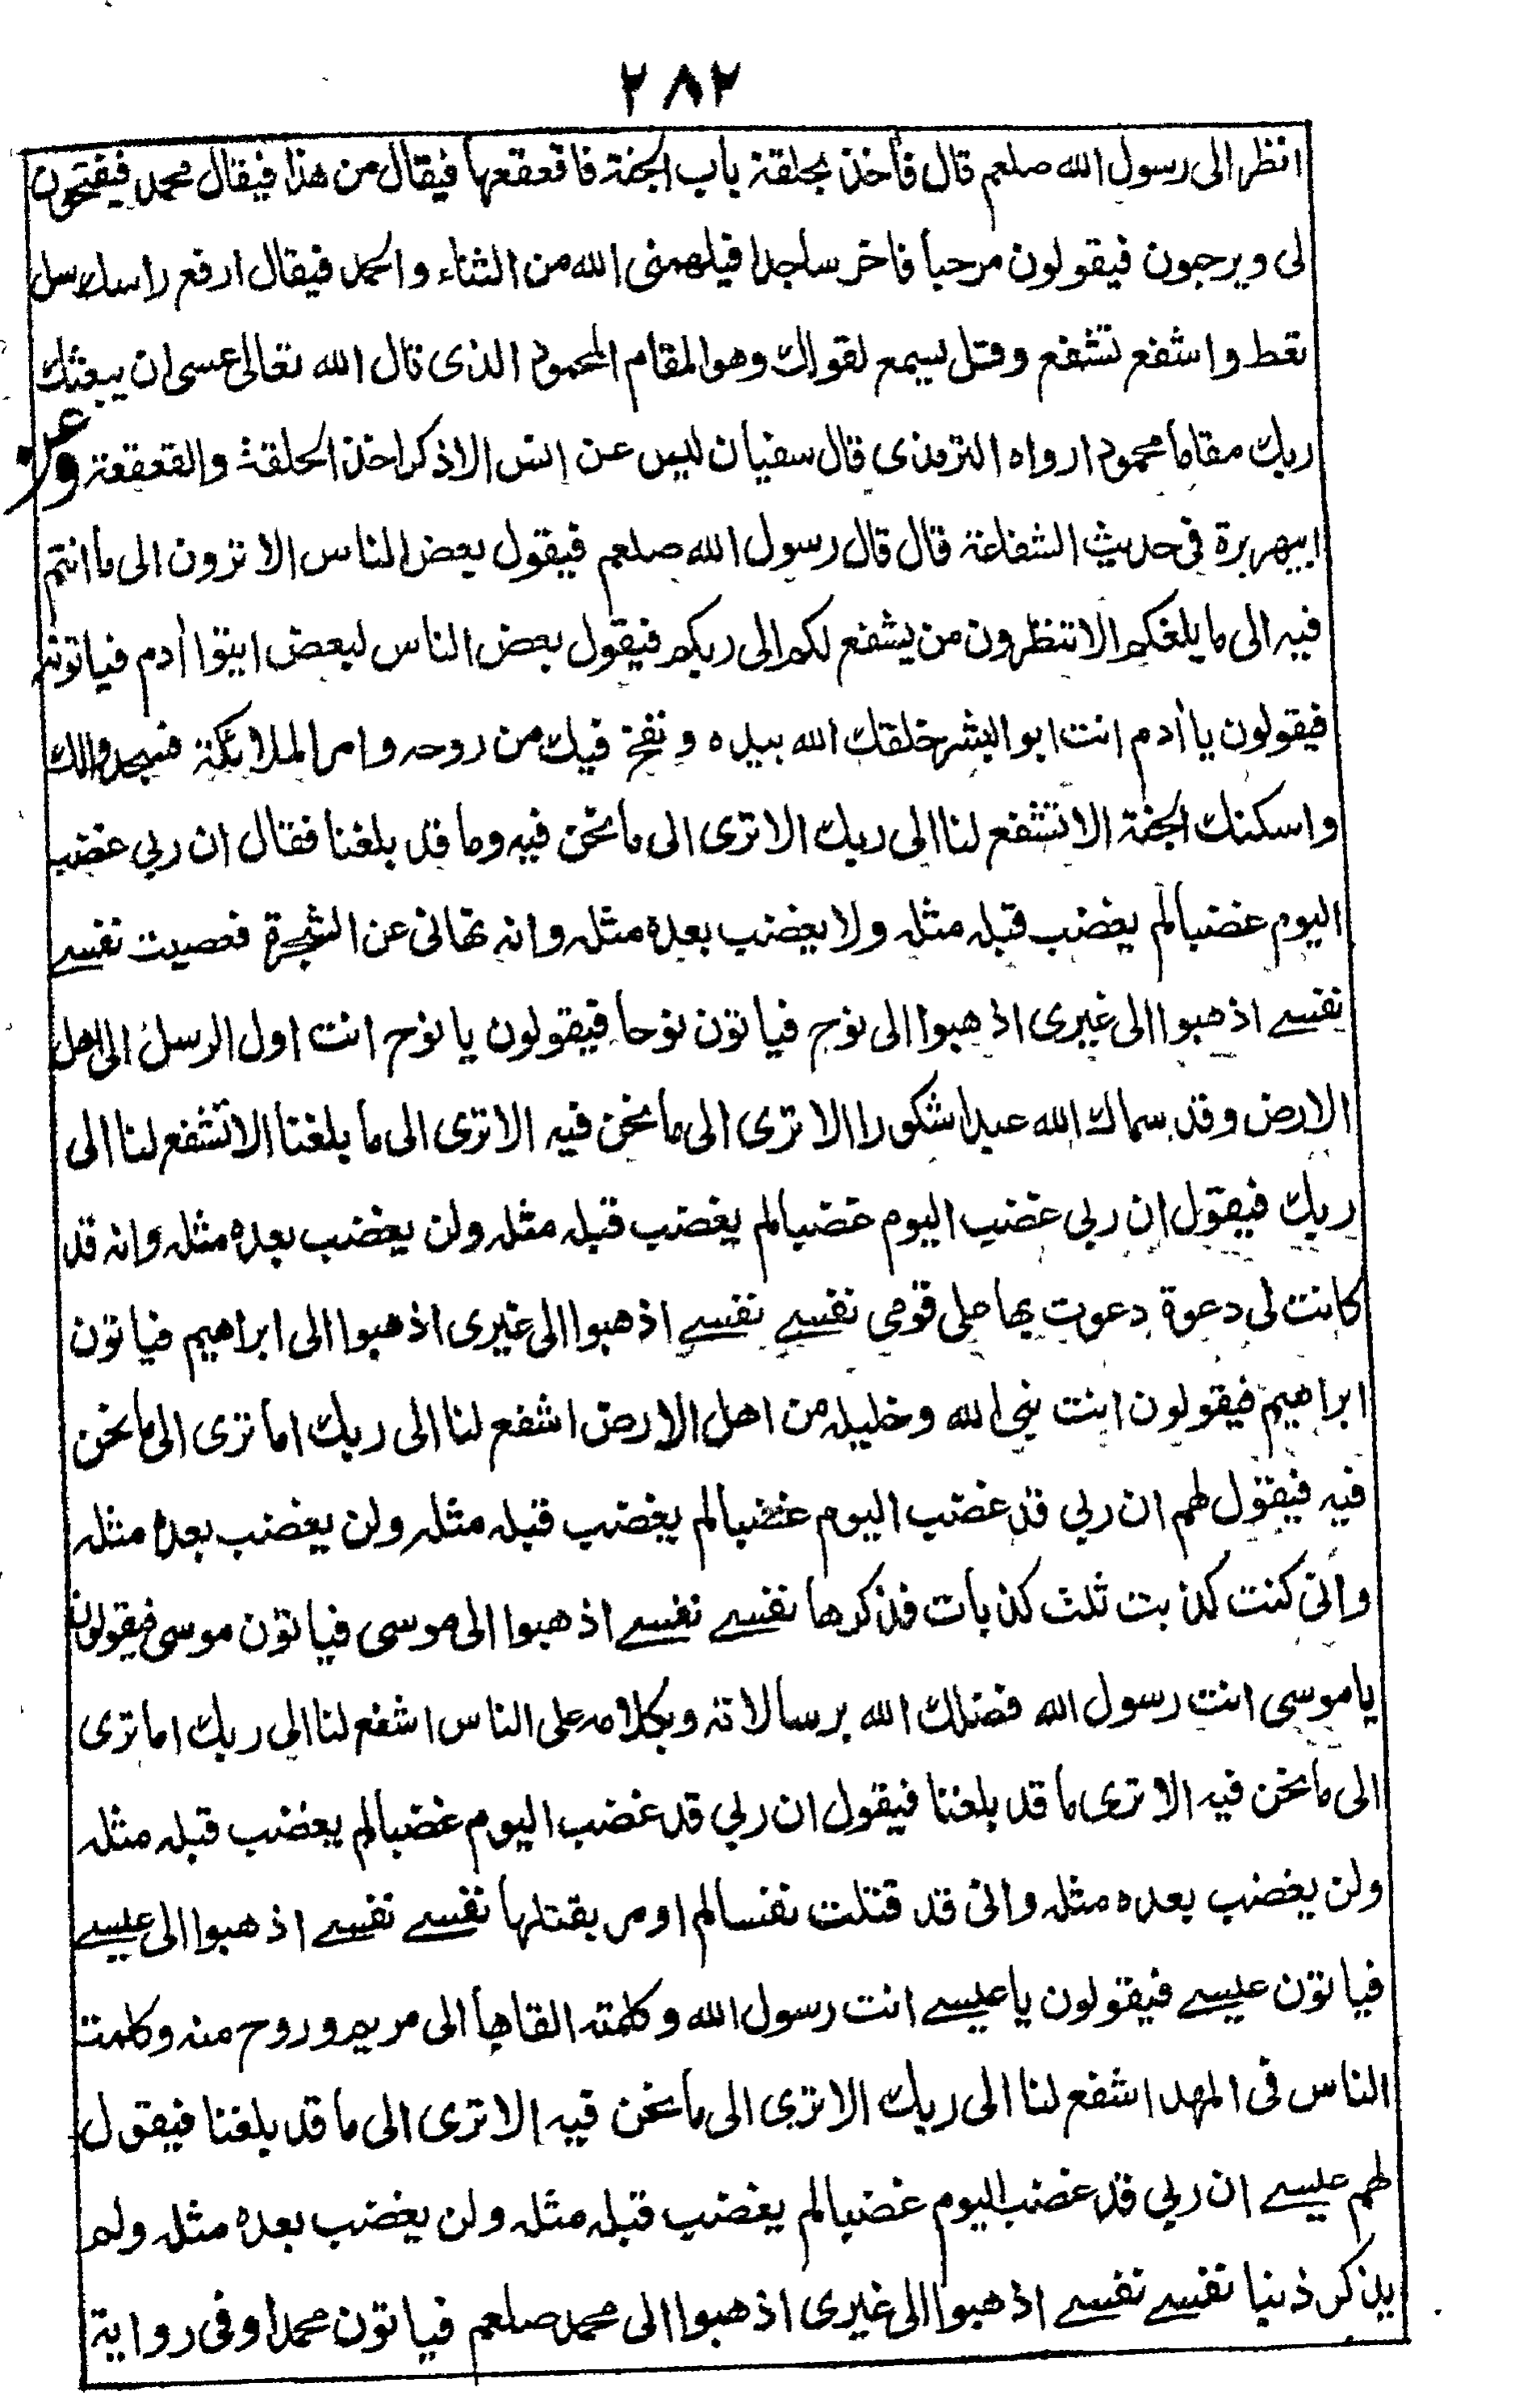 ٢٨٢
انظر الى رسول الله صلعم قال فأخذ بحلقة باب الجنة فاقعقعها فيقال من هذا فيقال محمد فيفتحون
لى ويرحبون فيقولون مرحبا فاخر ساجدا فيلهمنى الله من الثناء والحمد فيقال ارفع راسك سل
تعط واشفع تشفع وقل يسمع لقولك وهو المقام المحمود الذى قال الله تعالى عسى ان يبعثك
ربك مقاما محمودا رواه الترمذى قال سفيان ليس عن انس الا ذكر اخذ الحلقة والقعقعة وعن
ابيهريرة فى حديث الشفاعة قال قال رسول الله صلعم فيقول بعض الناس الا ترون الى ما انتم
فيه الى ما يلغكم الا تنظرون من يشفع لكم الى ربكم فيقول بعض الناس لبعض ايتوا أدم فياتونه
فيقولون يا أدم انت ابو البشر خلقك الله بيده ونفخ فيك من روحه وامر الملائكة فسجدوا لك
واسكنك الجنة الا تشفع لنا الى ربك الا ترى الى ما نحن فيه وما قد بلغنا فقال ان ربي غضب
اليوم غضبا لم يغضب قبله مثله ولا يغضب بعده مثله وانه نهانى عن الشجرة فعصيت نفسے
نفسے اذهبوا الى غيرى اذهبوا الى نوح فياتون نوحا فيقولون يا نوح انت اول الرسل الى اهل
الارض وقد سماك الله عبدا شكورا الا ترى الى ما نحن فيه الا ترى الى ما بلغنا الا تشفع لنا الى
ربك فيقول ان ربى غضب اليوم غضبا لم يغضب قبله مثله ولن يغضب بعده مثله وانه قد
كانت لى دعوة دعوت بها على قومى نفسے نفسے اذهبوا الى غيرى اذهبوا الى ابراهيم فياتون
ابراهيم فيقولون انت نبى الله وخليله من اهل الارض اشفع لنا الى ربك اما ترى الى ما نحن
فيه فيقول لهم ان ربي قد غضب اليوم غضبا لم يغضب قبله مثله ولن يغضب بعده مثله
وانى كنت كذبت ثلث كذبات فذكرها نفسے نفسے اذهبوا الى موسى فياتون موسى فيقولون
يا موسى انت رسول الله فضلك الله برسالاته وبكلامه على الناس اشفع لنا الى ربك اما ترى
الى ما نحن فيه الا ترى ما قد بلغنا فيقول ان ربي قد غضب اليوم غضبا لم يغضب قبله مثله
ولن يغضب بعده مثله وانى قد قتلت نفسا لم اومر بقتلها نفسے نفسے اذهبوا الى عيسے
فياتون عيسے فيقولون يا عيسے انت رسول الله وكلمته القاها الى مريم وروح منه وكلمت
الناس فى المهد اشفع لنا الى ربك الا ترى الى ما نحن فيه الا ترى الى ما قد بلغنا فيقول
لهم عيسے ان ربي قد غضب اليوم غضبا لم يغضب قبله مثله ولن يغضب بعده مثله ولم
يذكر ذنبا نفسے نفسے اذهبوا الى غيرى اذهبوا الى محمد صلعم فياتون محمدا وفى رواية